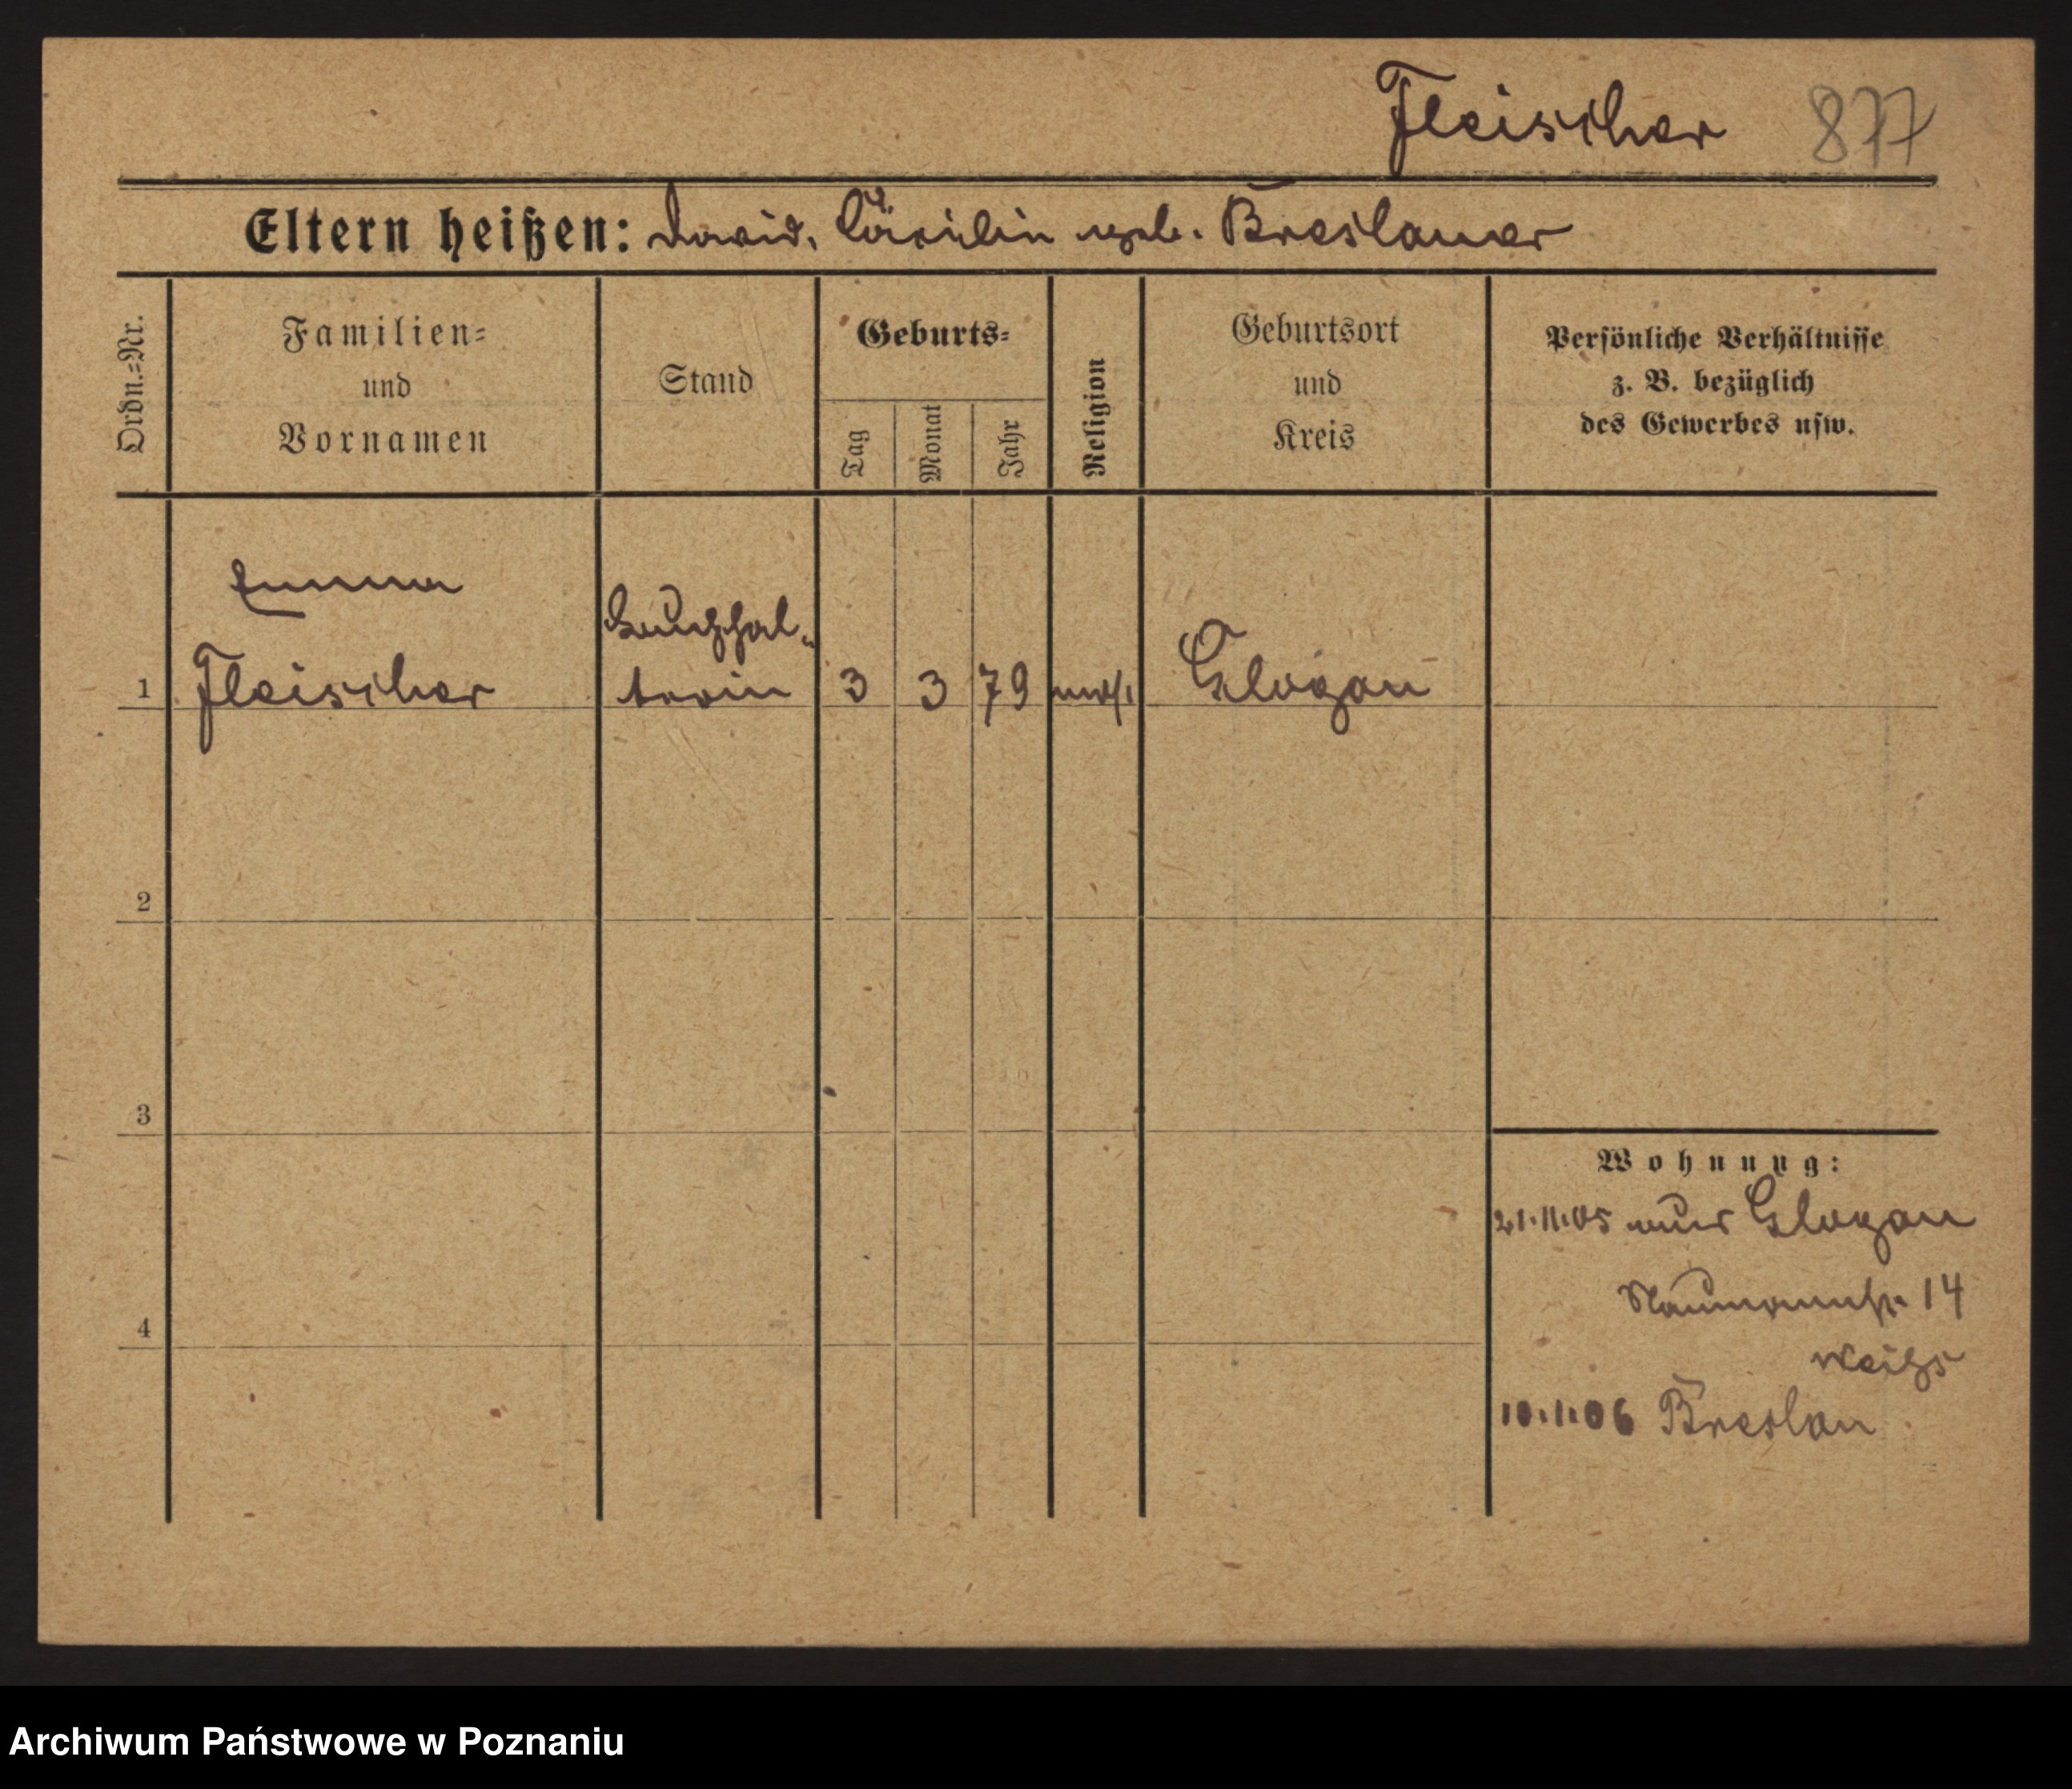 Fleischer 877
Eltern heißen: David, Cäcilie geb. Breslauer
Ordn.=Nr.
Familien=
und
Vornamen
Stand
Geburts=
Tag
Monat
Jahr
Religion
Geburtsort
und
Kreis
Persönliche Verhältnisse
z. B. bezüglich
des Gewerbes usw.
Emma
Buchhal-
1 Fleischer terin 3 3 79 mos. Glogau
2
3
Wohnung:
21.11.05 aus Glogau
Naumannstr. 14
4
10.1.06 Breslau
Archiwum Państwowe w Poznaniu